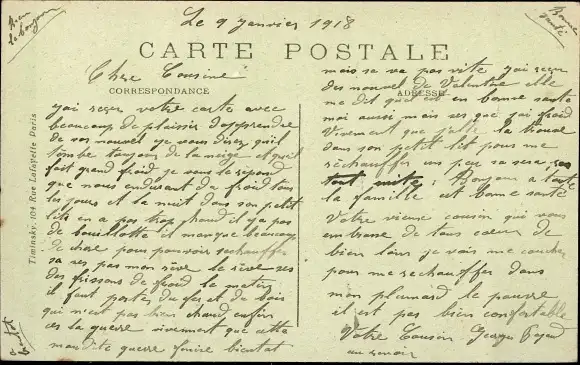 Le 9 Janvier 1918
Bonne
santé
CARTE POSTALE
CORRESPONDANCE
ADRESSE
Timinsky, 104 Rue Lafayette Paris
Chere Cousine
j'ai reçu votre carte avec
beaucoup de plaisir d'apprendre
de vos nouvel je vous direz quil
tombe toujour de la neige et quil
fait grand froid je vous le repond
que nous endurant du froid tous
les jours et la nuit dans son petit
lits on a pas trop chaud il y a pas
de bouillotte il manque beaucoup
de chose pour pouvoir se chauffer
sa ses pas mon rêve le rêve ses
des frissons de froid le matin
il faut portes du feu et du bois
qui n'est pas bien chaud enfin
ces la guerre vivement que cette
maudite guerre finire bientot
mais sa va pas vite j'ai reçu
des nouvel de Valentine elle
me dit quelle est en bonne santé
moi aussi mais ses que j'ai froid
vivement que j'aille la trouvé
dans son petit lit pour me
rechauffer un peu sa sera
tout suite. Bonjour a toute
la famille est bonne santé
Votre vieux cousin qui vous
embrasse de tous coeur de
bien loin je vais me coucher
pour me rechauffer dans
mon plumard le pauvre
il est pas bien confortable
Votre Cousin Georges
au revoir